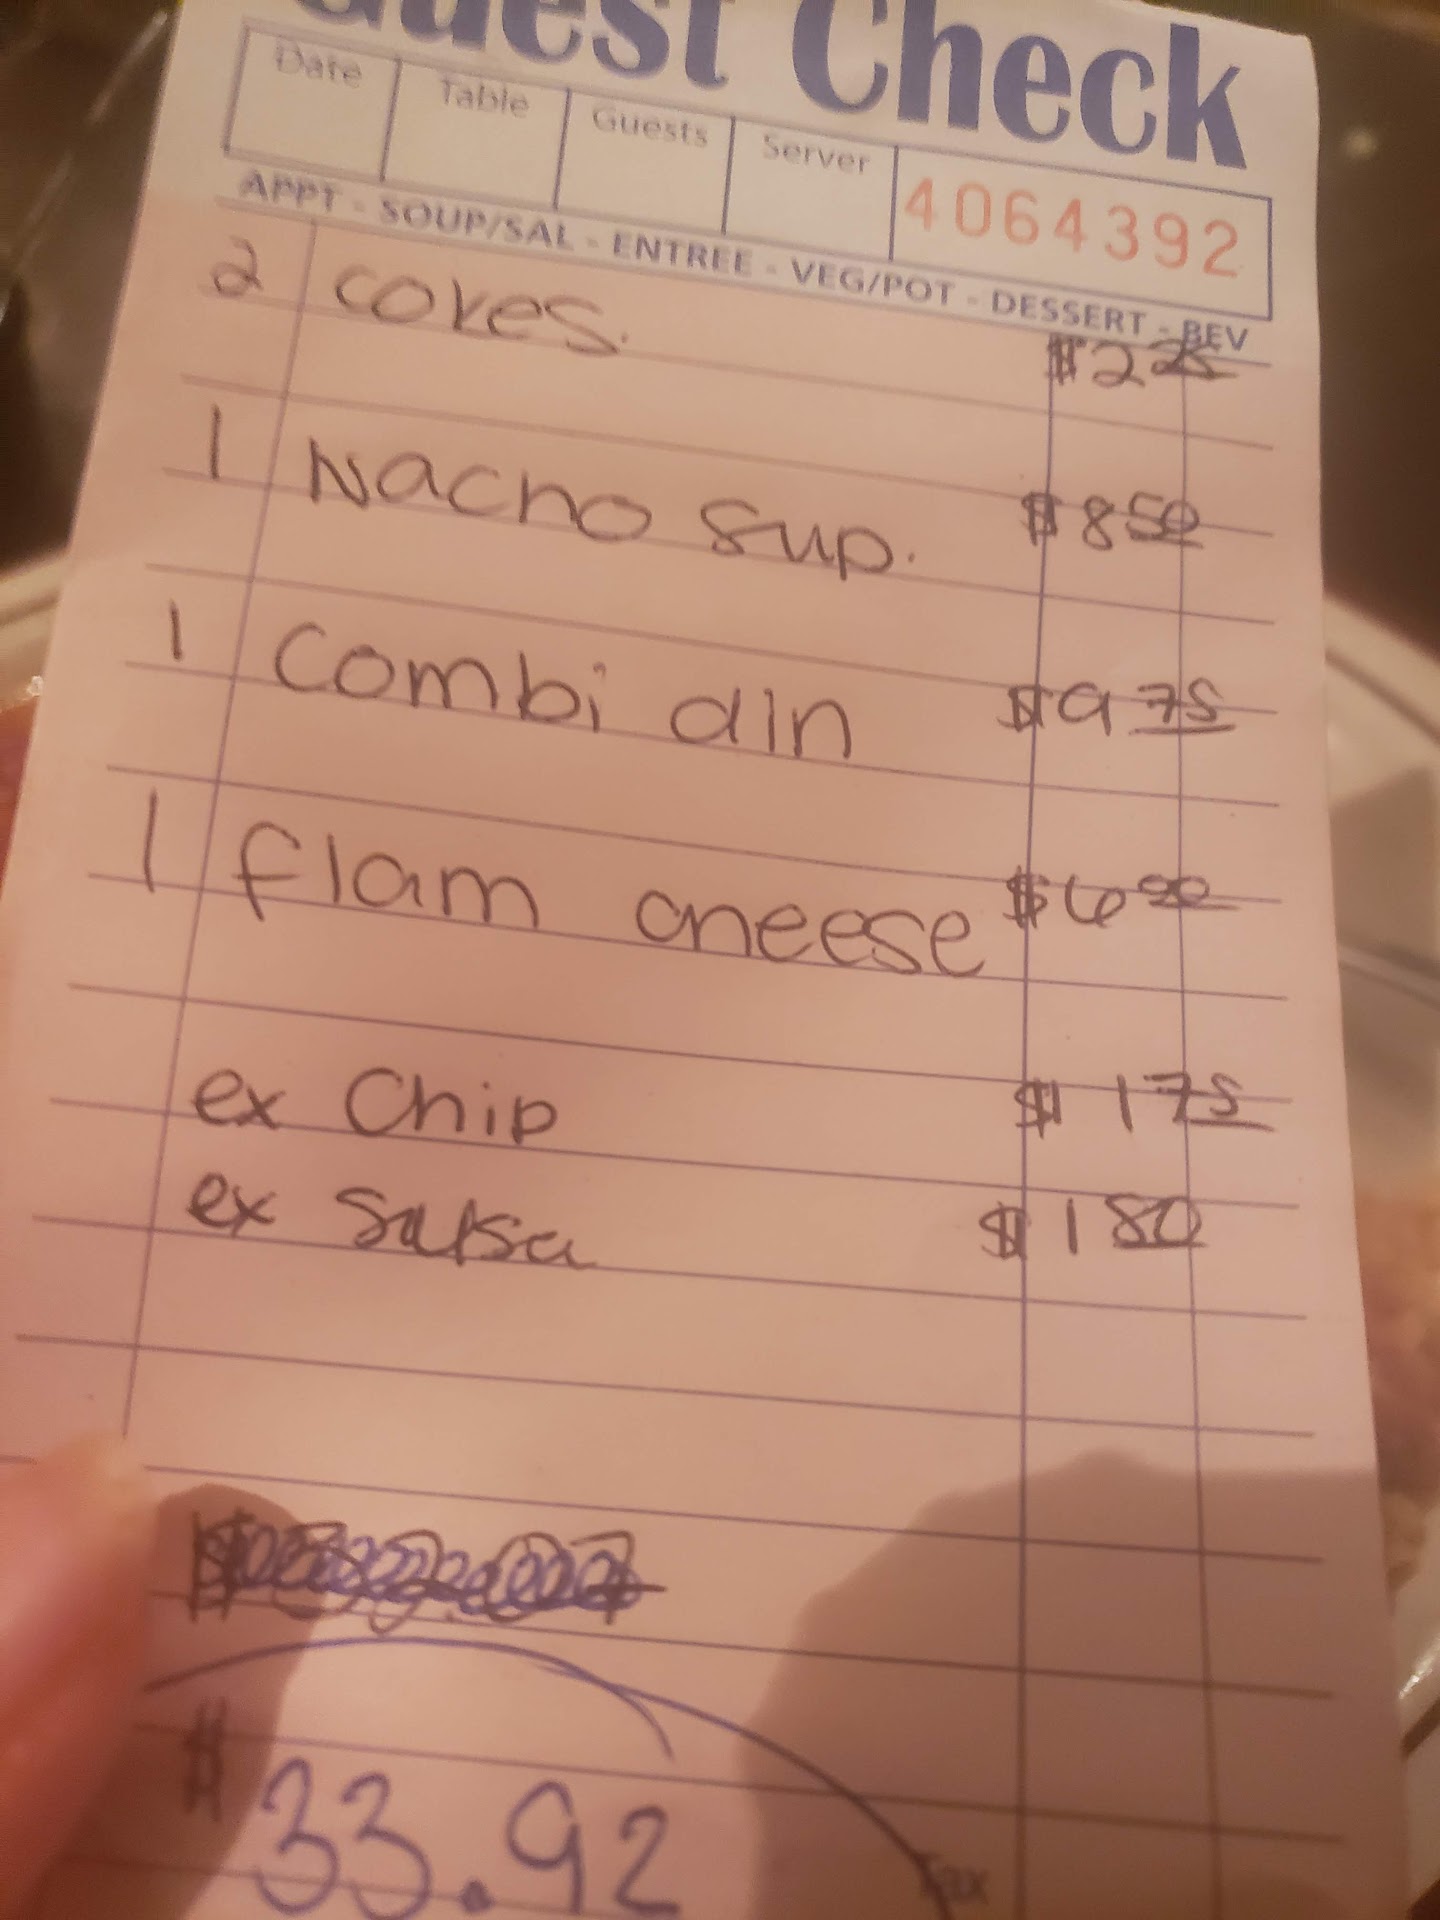 Guest Check
Date Table Guests Server 4064392
APPT - SOUP/SAL - ENTREE - VEG/POT - DESSERT - BEV
2 cokes. $2 25
1 Nacho Sup. $8 50
1 Combi din $9 75
1 flam cheese $6 00
ex Chip $1 75
ex Salsa $1 80
$33.92
Tax